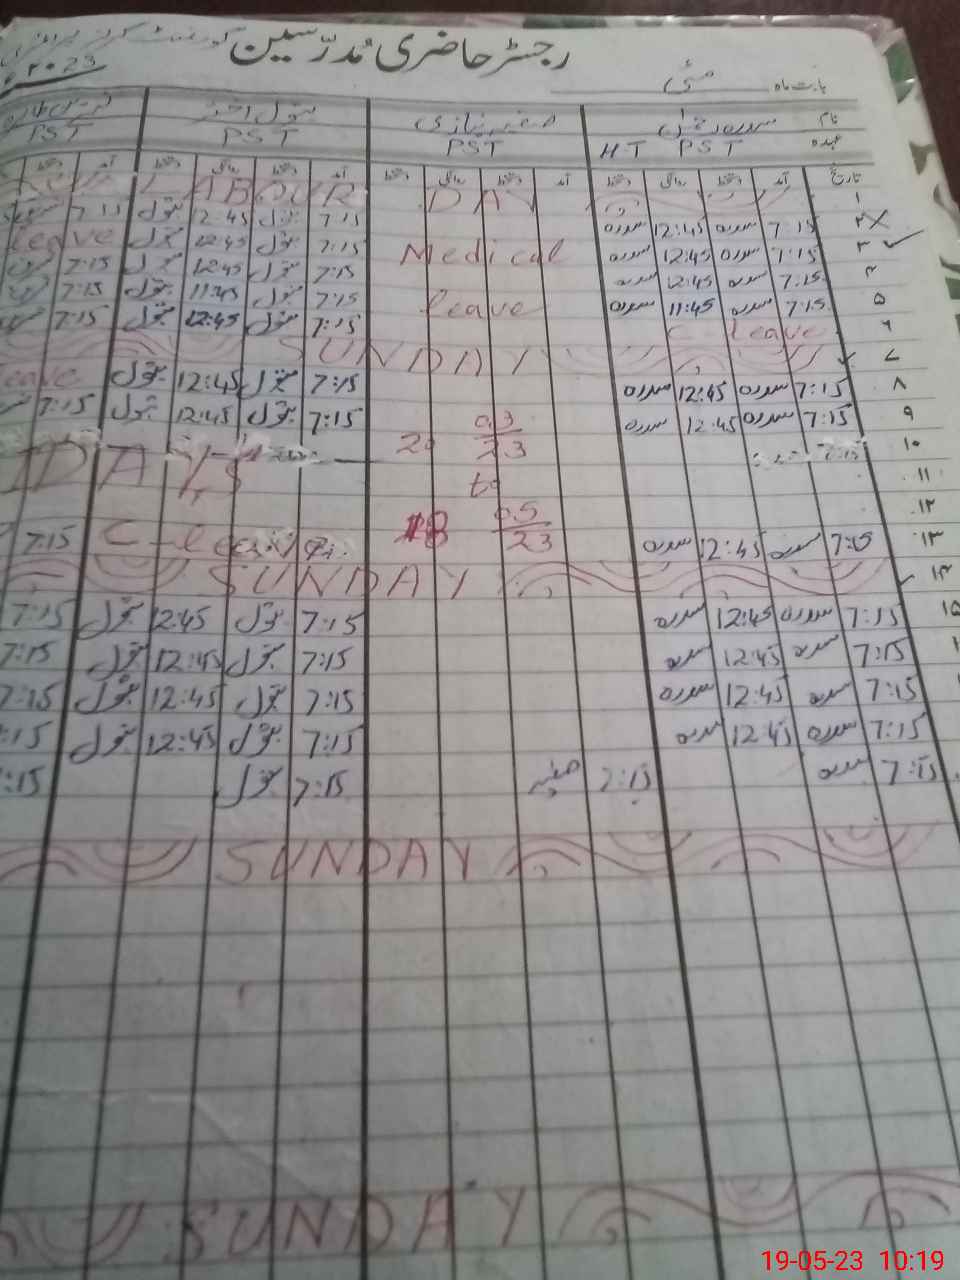 رجسٹر حاضری مُدرّسین گورنمنٹ
2023
بابت ماہ مئی
نام
عہدہ H T PST PST PST PST
تاریخ آمد دستخط روانگی دستخط آمد دستخط روانگی دستخط آمد دستخط روانگی دستخط آمد
۱ DAY LABOUR
۲ 7:15 سدرہ 12:45 سدرہ 7:15 بتول 12:45 بتول 7:15
۳ 7:15 سدرہ 12:45 سدرہ Medical 7:15 بتول 12:45 بتول leave
۴ 7:15 سدرہ 12:45 سدرہ 7:15 بتول 12:45 بتول 7:15
۵ 7:15 سدرہ 11:45 سدرہ leave 7:15 بتول 11:45 بتول 7:15
۶ C-leave 7:15 بتول 12:45 بتول 7:15
۷ SUNDAY
۸ 7:15 سدرہ 12:45 سدرہ 7:15 بتول 12:45 بتول leave
۹ 7:15 سدرہ 12:45 سدرہ 20 03/23 7:15 بتول 12:45 بتول 7:15
۱۰ 7:15
۱۱ to
۱۲
۱۳ 7:15 سدرہ 12:45 سدرہ 18 05/23 C-leave 7:15
۱۴ SUNDAY
۱۵ 7:15 سدرہ 12:45 سدرہ 7:15 بتول 12:45 بتول 7:15
7:15 سدرہ 12:45 سدرہ 7:15 بتول 12:45 بتول 7:15
7:15 سدرہ 12:45 سدرہ 7:15 بتول 12:45 بتول 7:15
7:15 سدرہ 12:45 سدرہ 7:15 بتول 12:45 بتول :15
7:15 سدرہ 7:15 صفیہ 7:15 بتول :15
SUNDAY
SUNDAY
19-05-23 10:19